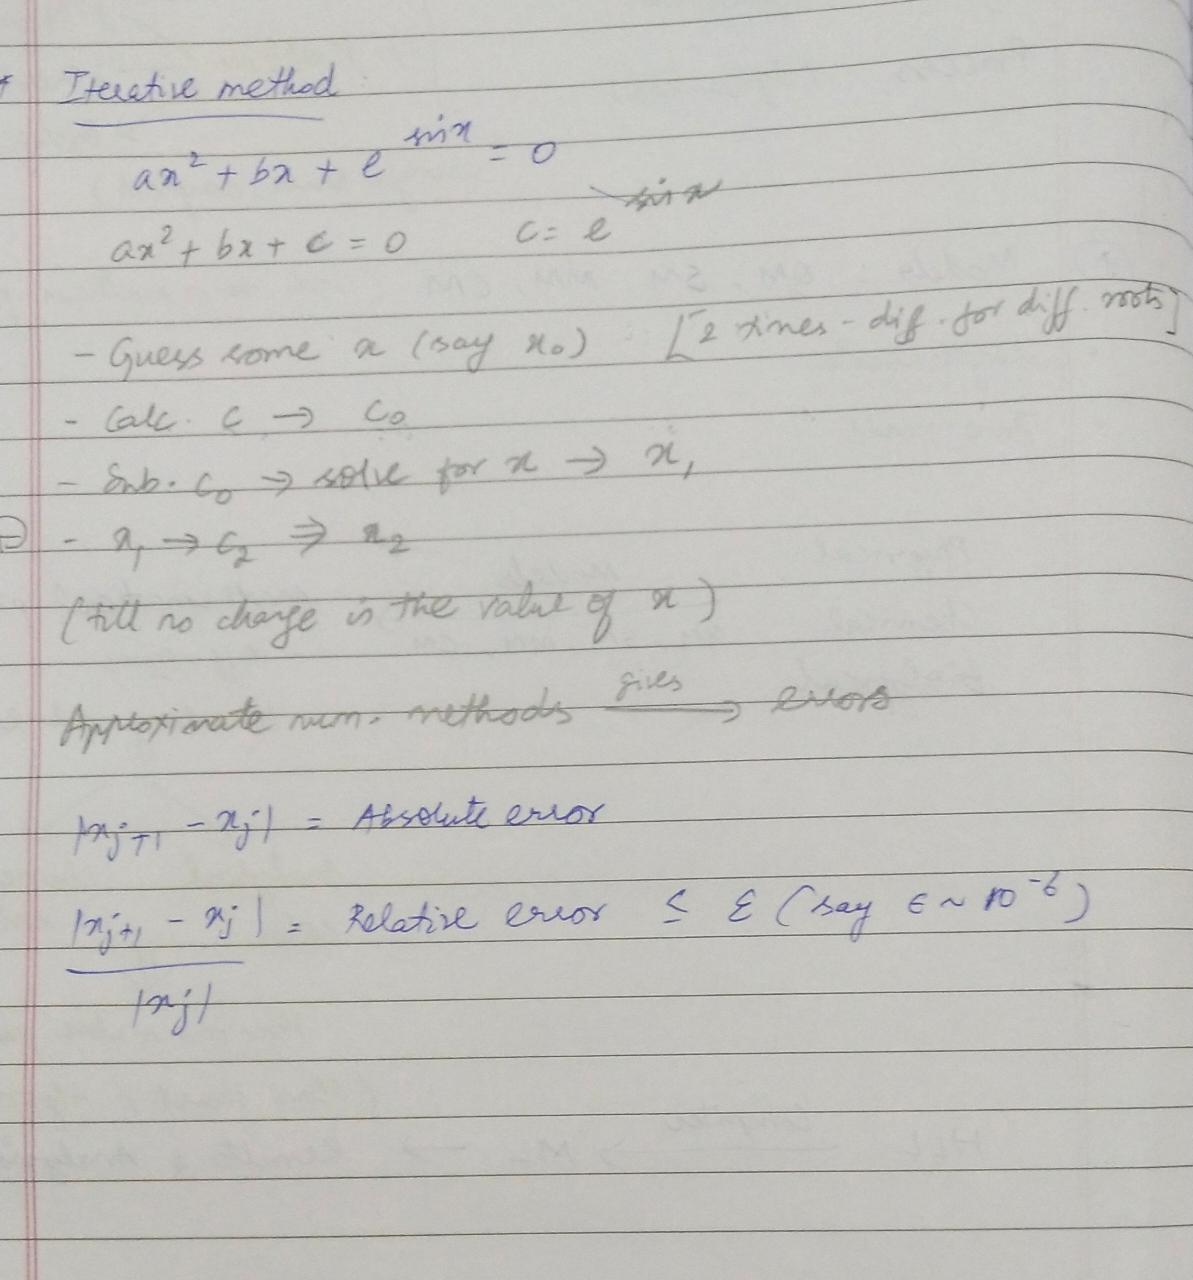 Iterative method
ax² + bx + e^sinx = 0
ax² + bx + c = 0 c = e^sinx
- Guess some x (say x₀) [2 times - dif. for diff. roots]
- Calc. c → c₀
- Sub. c₀ → solve for x → x₁
- x₁ → c₂ ⇒ x₂
(till no change in the value of x)
Approximate num. methods gives → errors
|xⱼ₊₁ - xⱼ| = Absolute error
|xⱼ₊₁ - xⱼ| / |xⱼ| = Relative error ≤ ε (say ε ~ 10⁻⁶)